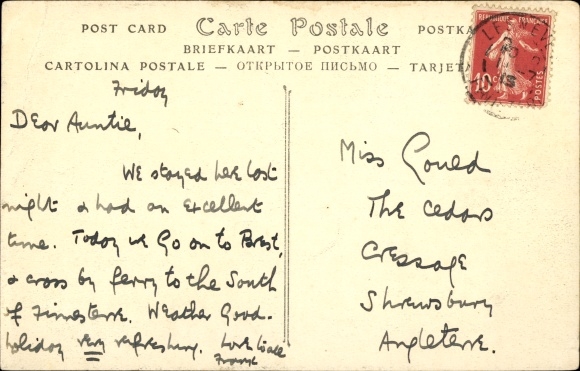 POST CARD Carte Postale POSTKA
BRIEFKAART — POSTKAART
CARTOLINA POSTALE — ОТКРЫТОЕ ПИСЬМО — TARJETA
REPUBLIQUE FRANÇAISE
10c
POSTES
Friday
Dear Auntie,
We stayed here last
night & had an excellent
time. Today we go on to Brest,
& cross by ferry to the South
of Finnesterre. Weather Good.
holiday very refreshing. Love to all
Frank
Miss Gould
The Cedars
Cressage
Shrewsbury
Angleterre.